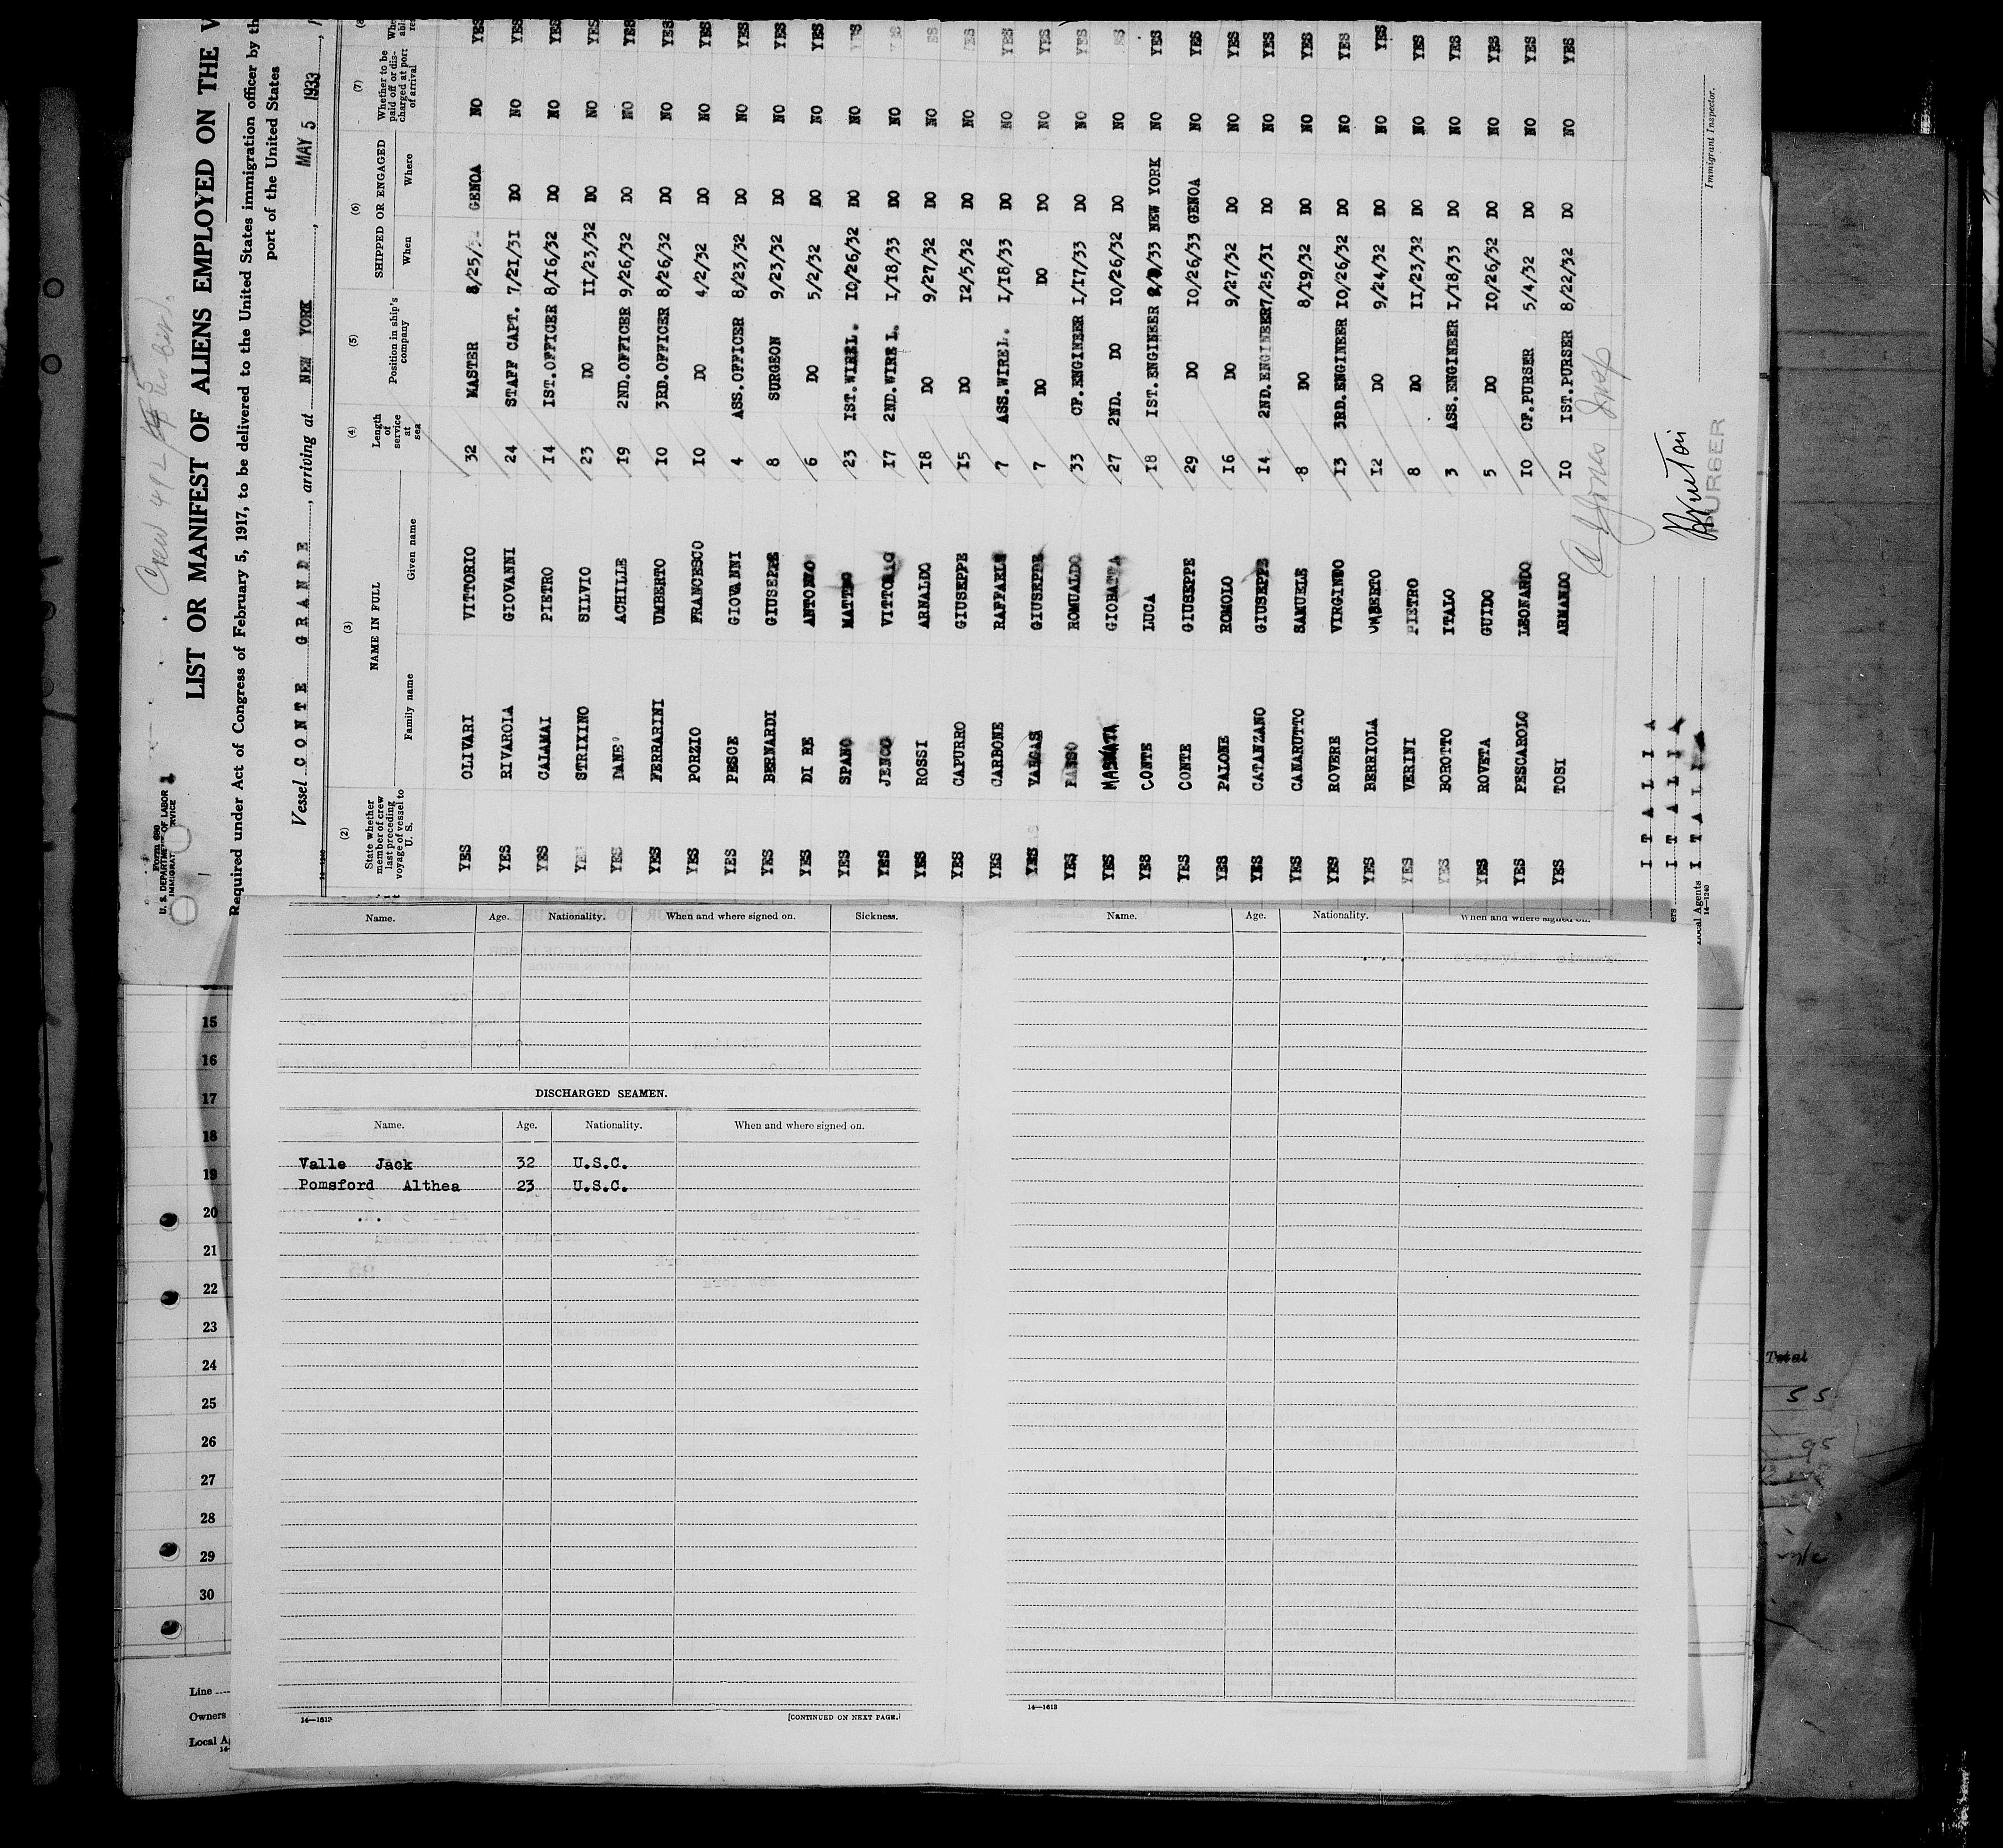 Form 680
U. S. DEPARTMENT OF LABOR
IMMIGRATION SERVICE
Crew 492
LIST OR MANIFEST OF ALIENS EMPLOYED ON THE V
Required under Act of Congress of February 5, 1917, to be delivered to the United States immigration officer by th
port of the United States
Vessel CONTE GRANDE, arriving at NEW YORK, MAY 5 1933,
(2) (3) (4) (5) (6) (7) (8)
State whether member of crew last preceding voyage of vessel to U. S.
NAME IN FULL
Family name Given name
Length of service at sea
Position in ship's company
SHIPPED OR ENGAGED
When Where
Whether to be paid off or discharged at port of arrival
YES OLIVARI VITTORIO 32 MASTER 8/25/32 GENOA NO YES
YES RIVAROLA GIOVANNI 24 STAFF CAPT. 7/21/31 DO NO YES
YES CALAMAI PIETRO 14 IST.OFFICER 8/16/32 DO NO YES
YES STRIXINO SILVIO 23 DO 11/23/32 DO NO YES
YES DANE' ACHILLE 19 2ND.OFFICER 9/26/32 DO NO YES
YES FERRARINI UMBERTO 10 3RD.OFFICER 8/26/32 DO NO YES
YES PORZIO FRANCESCO 10 DO 4/2/32 DO NO YES
YES PESCE GIOVANNI 4 ASS.OFFICER 8/23/32 DO NO YES
YES BERNARDI GIUSEPPE 8 SURGEON 9/23/32 DO NO YES
YES DI RE ANTONIO 6 DO 5/2/32 DO NO YES
YES SPANO MATTEO 23 IST.WIREL. 10/26/32 DO NO YES
YES JENCO VITTORIO 17 2ND.WIREL. 1/18/33 DO NO YES
YES ROSSI ARNALDO 18 DO 9/27/32 DO NO YES
YES CAPURRO GIUSEPPE 15 DO 12/5/32 DO NO YES
YES CARBONE RAFFAELE 7 ASS.WIREL. 1/18/33 DO NO YES
YES VARGAS GIUSEPPE 7 DO DO DO NO YES
YES ROMUALDO 33 CF.ENGINEER 1/17/33 DO NO YES
YES GIOBATTA 27 2ND. DO 10/26/32 DO NO YES
YES CONTE LUCA 18 IST.ENGINEER /33 NEW YORK NO YES
YES CONTE GIUSEPPE 29 DO 10/26/33 GENOA NO YES
YES PALONE ROMOLO 16 DO 9/27/32 DO NO YES
YES CATANZANO GIUSEPPE 14 2ND.ENGINEER 7/25/31 DO NO YES
YES CANARUTTO SAMUELE 8 DO 8/19/32 DO NO YES
YES ROVERE VIRGINIO 13 3RD.ENGINEER 10/26/32 DO NO YES
YES BERRIOLA UMBERTO 12 DO 9/24/32 DO NO YES
YES VERINI PIETRO 8 DO 11/23/32 DO NO YES
YES BOROTTO ITALO 3 ASS.ENGINEER 1/18/33 DO NO YES
YES ROVETA GUIDO 5 DO 10/26/32 DO NO YES
YES PESCAROLO LEONARDO 10 CF.PURSER 5/4/32 DO NO YES
YES TOSI ARMANDO 10 IST.PURSER 8/22/32 DO NO YES
Jones Insp
ITALIA
ITALIA
Local Agents ITALIA
14-1240
PURSER
Immigrant Inspector.
Name. Age. Nationality. When and where signed on. Sickness.
DISCHARGED SEAMEN.
Name. Age. Nationality. When and where signed on.
Valle Jack 32 U.S.C.
Pomsford Althea 23 U.S.C.
14—1613
[CONTINUED ON NEXT PAGE.]
Name. Age. Nationality. When and where signed on.
14—1613
15
16
17
18
19
20
21
22
23
24
25
26
27
28
29
30
Line
Owners
Local A
Total
55
95